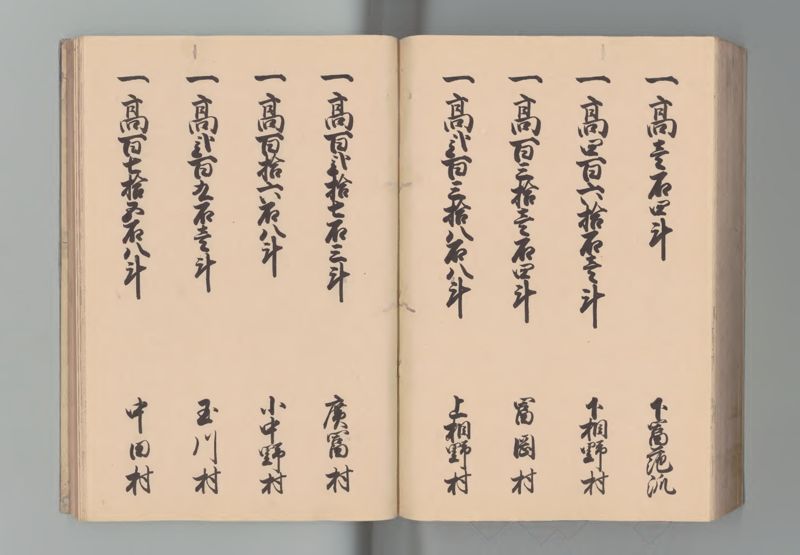 一高壱石四斗 下富萢派
一高四百六拾石壱斗 下相野村
一高百三拾壱石四斗 富岡村
一高弐百三拾八石八斗 上相野村
一高百弐拾七石三斗 廣富村
一高百拾六石八斗 小中野村
一高弐百九石壱斗 玉川村
一高百七拾五石八斗 中田村